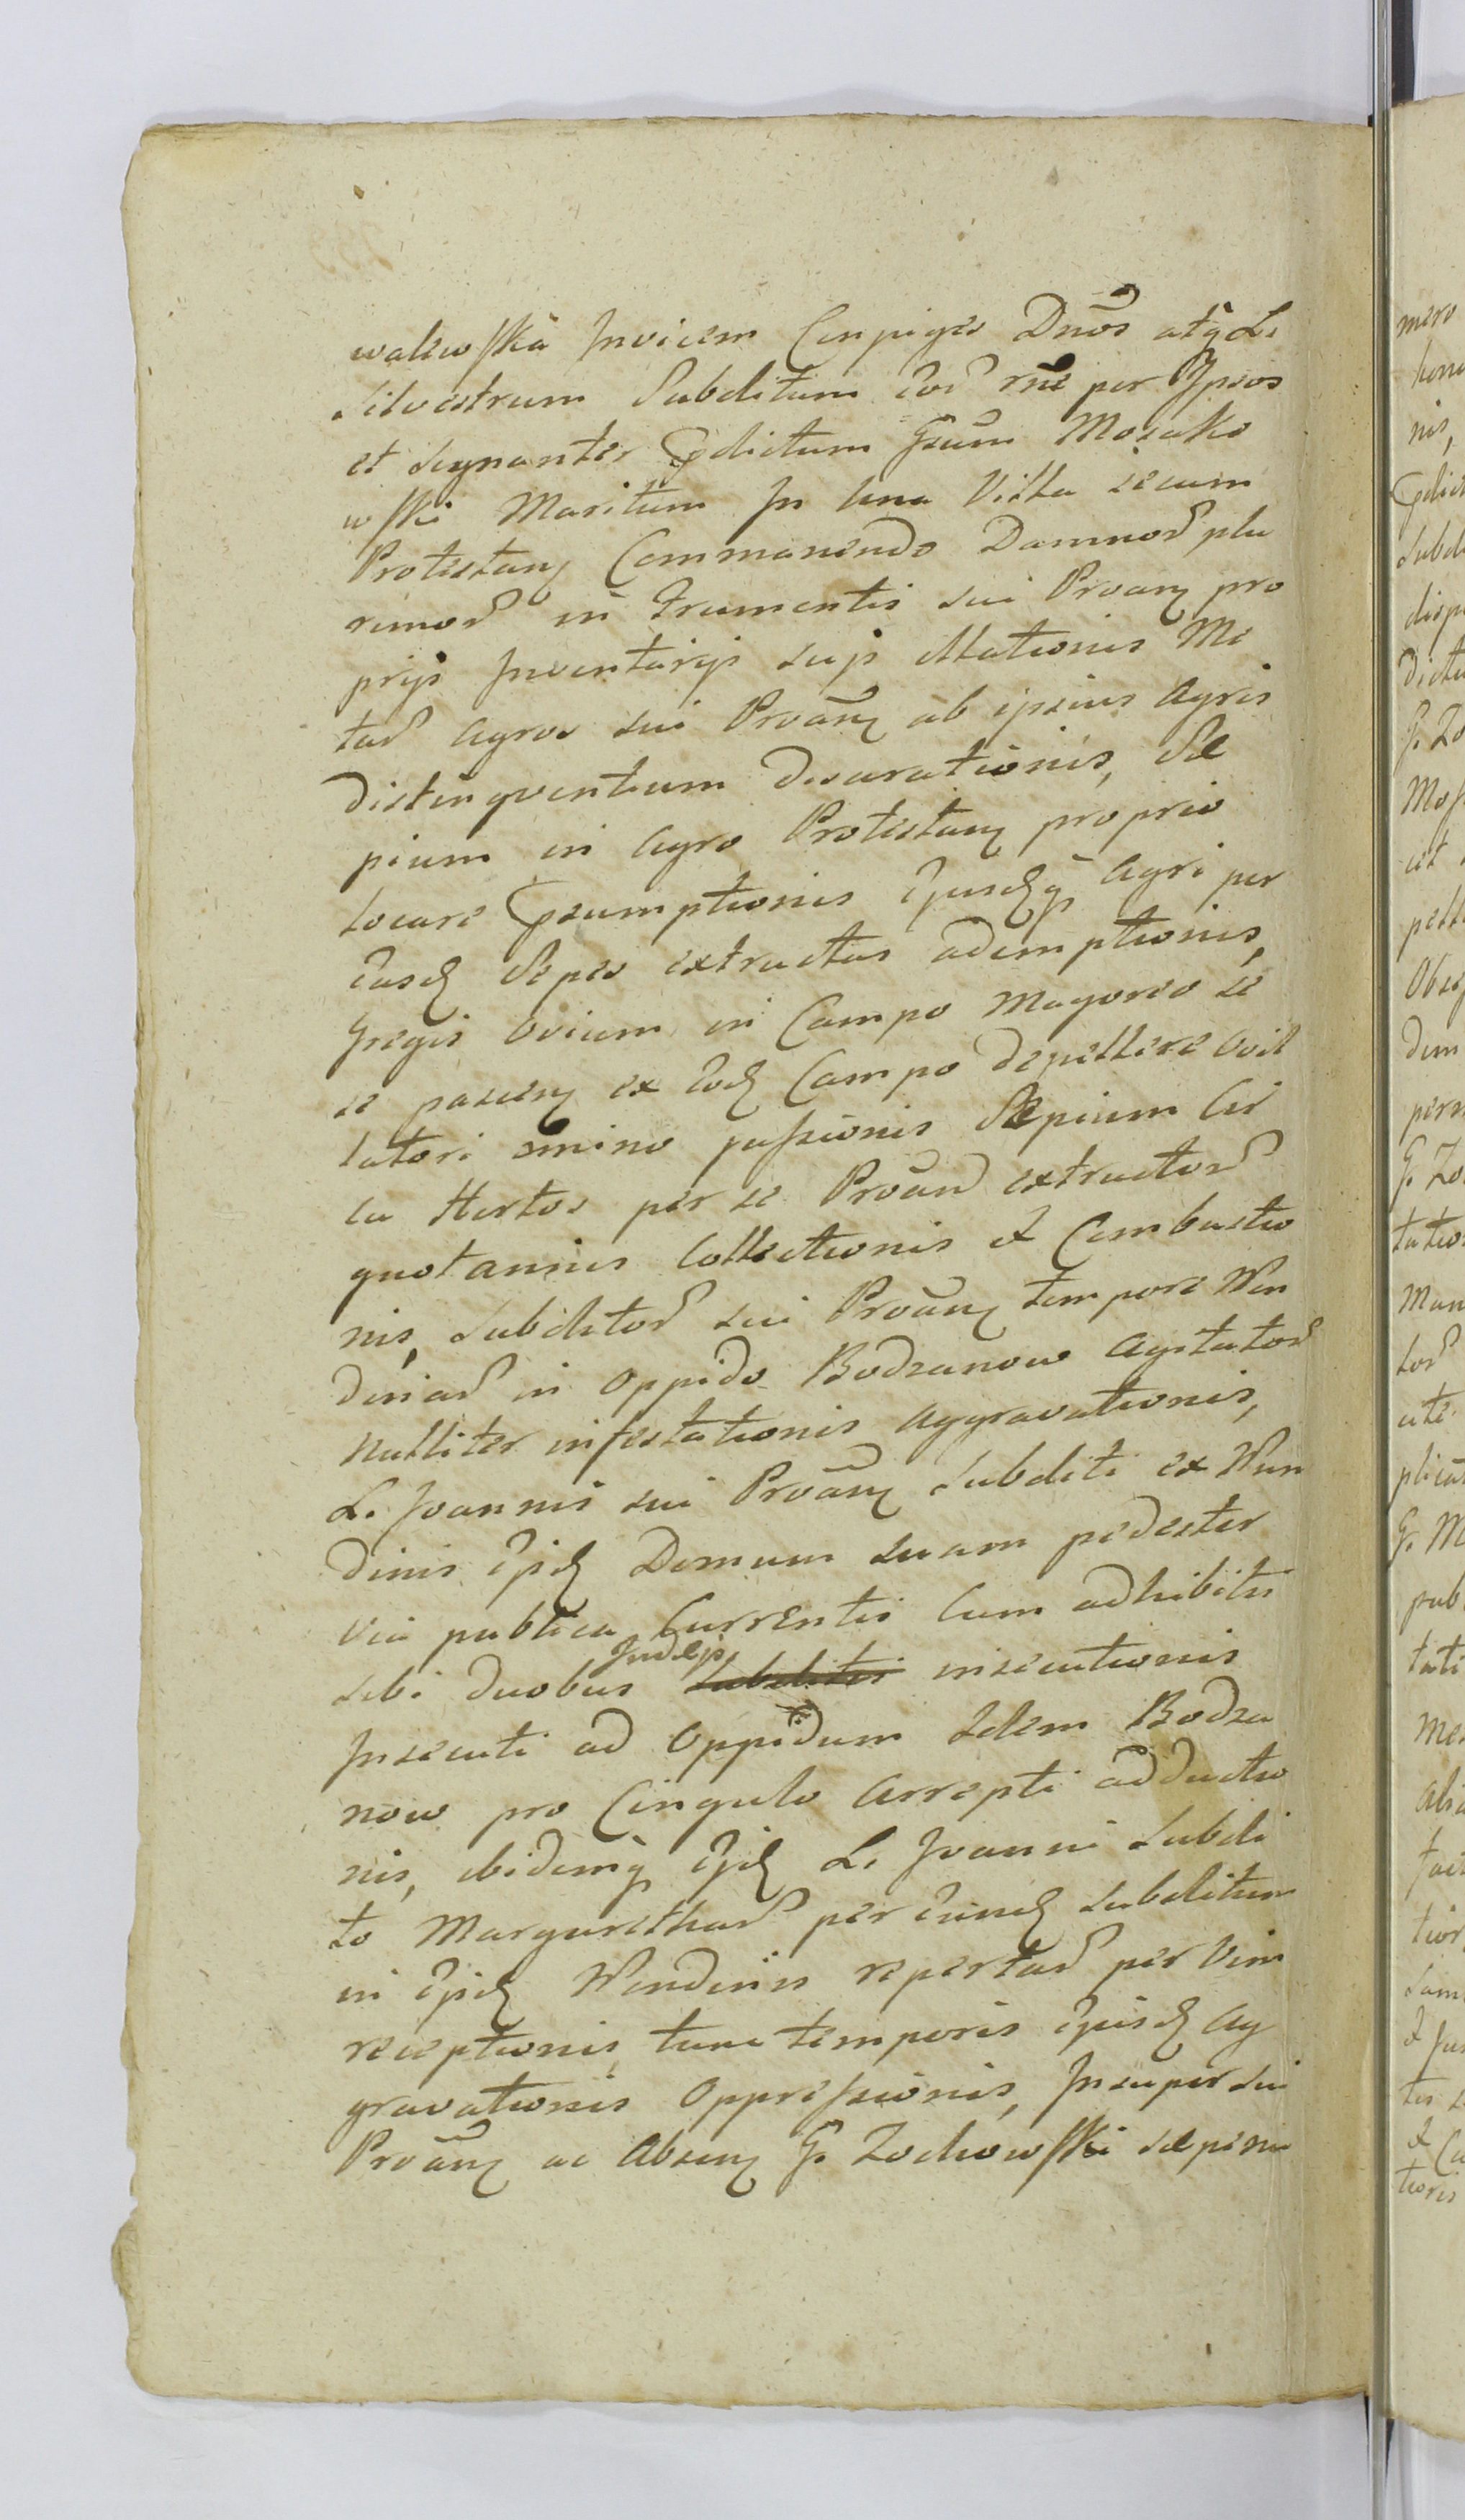 walewska Invicem Conjuges Dnōs atq̄ L.
Silvestrum Subditum Eoꝝ rne per Ipsos
et signanter Pdictum Gsum Mosako
wski Maritum In una Villa secum
Protestanȝ Commanendo Damnoꝝ plu
rimoꝝ in frumentis sui Proanȝ pro
prijs Inventarijs suis illationis Me
taꝝ Agros sui Proānȝ ab ipsius Agris
distingventium dexarationis, Se
pium in Agro Protestanȝ proprio
locare Psumptionis Ejusdȝq̄ Agri per
Easdȝ Sepes extructas ademptionis,
Gregis ovium in Campo Magorео se
se pascenȝ ex Eodȝ Campo depellere Ovil
latori omino passionis Sepium Cir
ca Hortos per se Proanȝ extructoꝝ
quotannis Collectionis et Combustio
nis, Subditoꝝ sui Proānȝ tempore Nun
dinaꝝ in Oppido Bodzanow Agitatoꝝ
Nulliter infestationis Aggravationis,
L. Joannis sui Proānȝ Subditi ex Nun
dinis Ejsdȝ Domum suam pedester
via publica Currentis Cum adhibitis
sibi duobus Judæis insecutionis
Insecuti ad Oppidum Idem Bodza
now pro Cingulo Arrepti adductio
nis, ibidemq̄ Ejdȝ L. Joanni Subdi
to Margarethaꝝ per Eundȝ Subditum
in Ejsdȝ Nundinis repertaꝝ per Vim
receptionis, tunc temporis Ejusdȝ Ag
gravationis Oppressionis, Insuper sui
Proānȝ ac Absenȝ G. Zochowski sepium